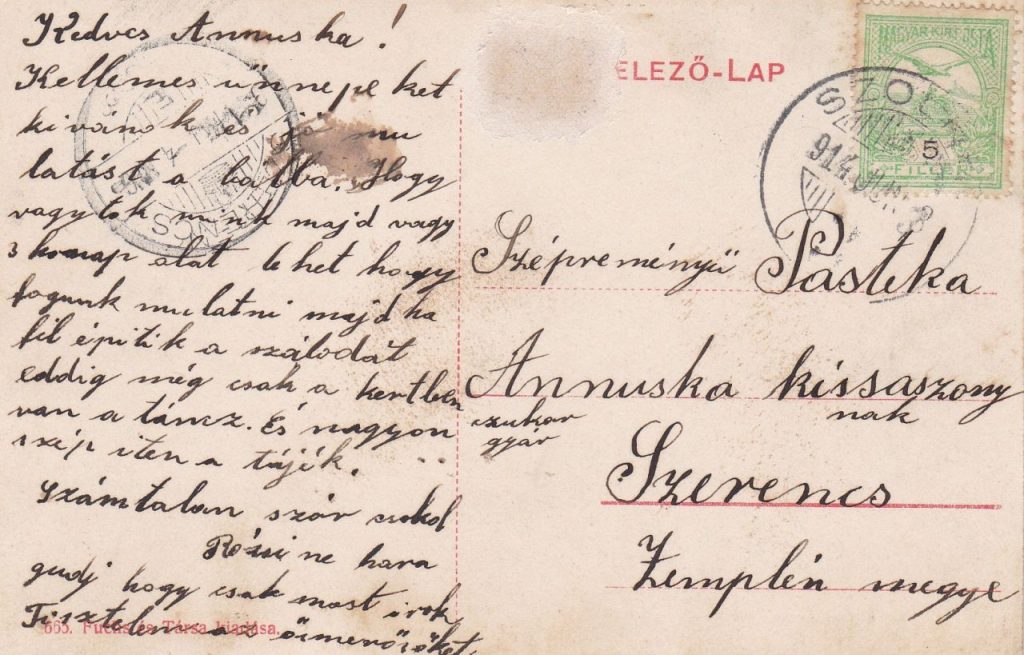 Kedves Annuska!
Kellemes ünnepeket
kivánok es jó mu
latást a balba. Hogy
vagytok mink majd vagy
3 honap alat lehet hogy
fogunk mulatni majd ha
fel épitik a szálodát
eddig még csak a kertben
van a táncz. És nagyon
szép iten a tájék.
Számtalan szór csokol
Rózsi ne hara
gudj hogy csak most irok
Tisztelem az ösmerősöket
665. Fuchs és Társa kiadása.
ELEZŐ-LAP
MAGYAR KIR. POSTA
5
FILLÉR
SZOLN
914 JUN
SZERENCS
Szépreményü Pastika
Annuska kissaszony
nak
czukor
gyár
Szerencs
Zemplén megye